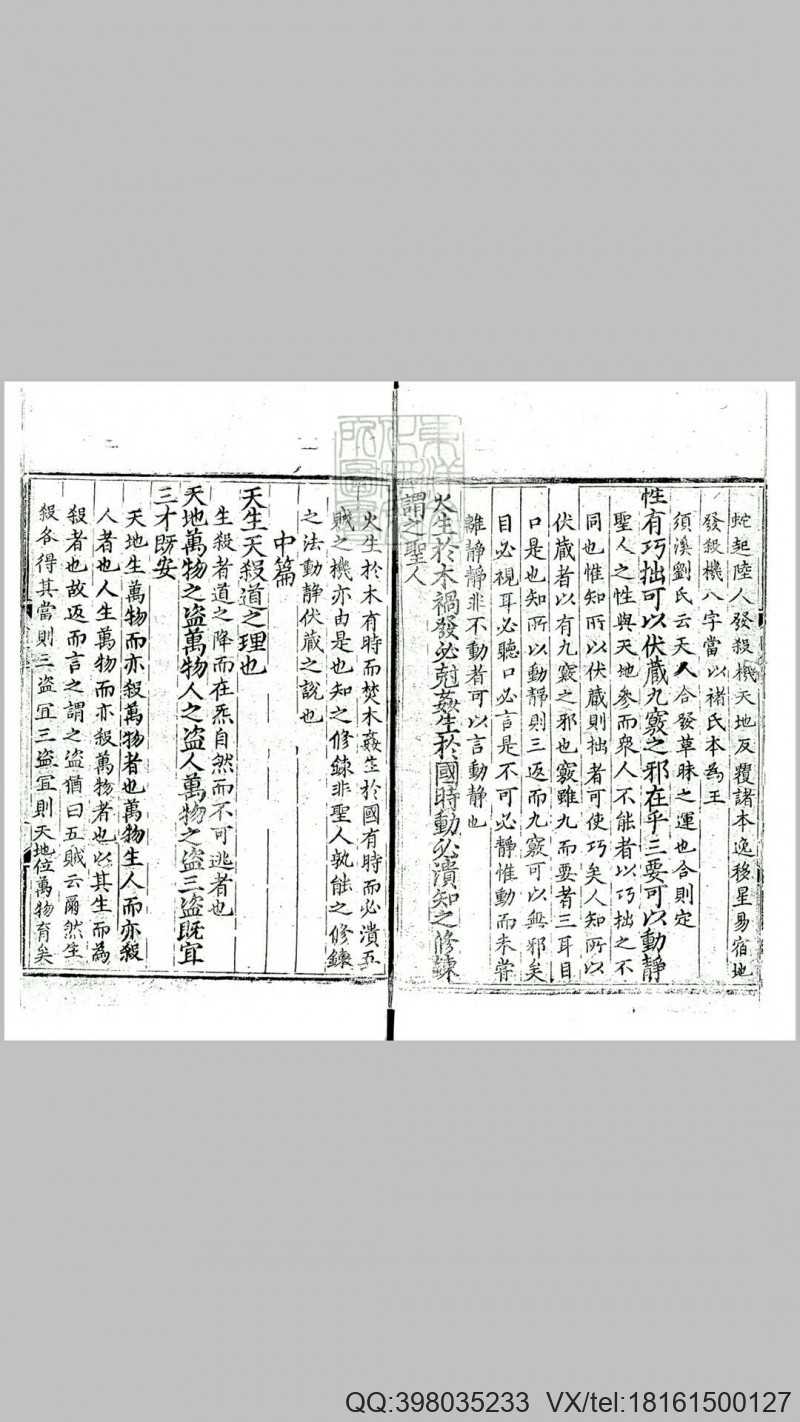 蛇起陸人發殺機天地反覆諸本逸移星易宿地
發殺機八字當以褚氏本為王
須溪劉氏云天人合發草昧之運也合則定
性有巧拙可以伏藏九竅之邪在乎三要可以動靜
聖人之性與天地參而衆人不能者以巧拙之不
同也惟知所以伏藏則拙者可使巧矣人知所以
伏藏者以有九竅之邪也竅雖九而要者三耳目
口是也知所以動靜則三返而九竅可以無邪矣
目必視耳必聽口必言是不可必靜惟動而未嘗
離靜靜非不動者可以言動靜也
火生於木禍發必尅姦生於國時動必潰知之修鍊
謂之聖人
火生於木有時而焚木姦生於國有時而必潰五
賊之機亦由是也知之修鍊非聖人孰能之修鍊
之法動靜伏藏之說也
中篇
天生天殺道之理也
生殺者道之降而在炁自然而不可逃者也
天地萬物之盜萬物人之盜人萬物之盜三盜既宜
三才既安
天地生萬物而亦殺萬物者也萬物生人而亦殺
人者也人生萬物而亦殺萬物者也以其生而為
殺者也故返而言之謂之盜猶曰五賊云爾然生
殺各得其當則三盜宜三盜宜則天地位萬物育矣
QQ:398035233 VX/tel:18161500127